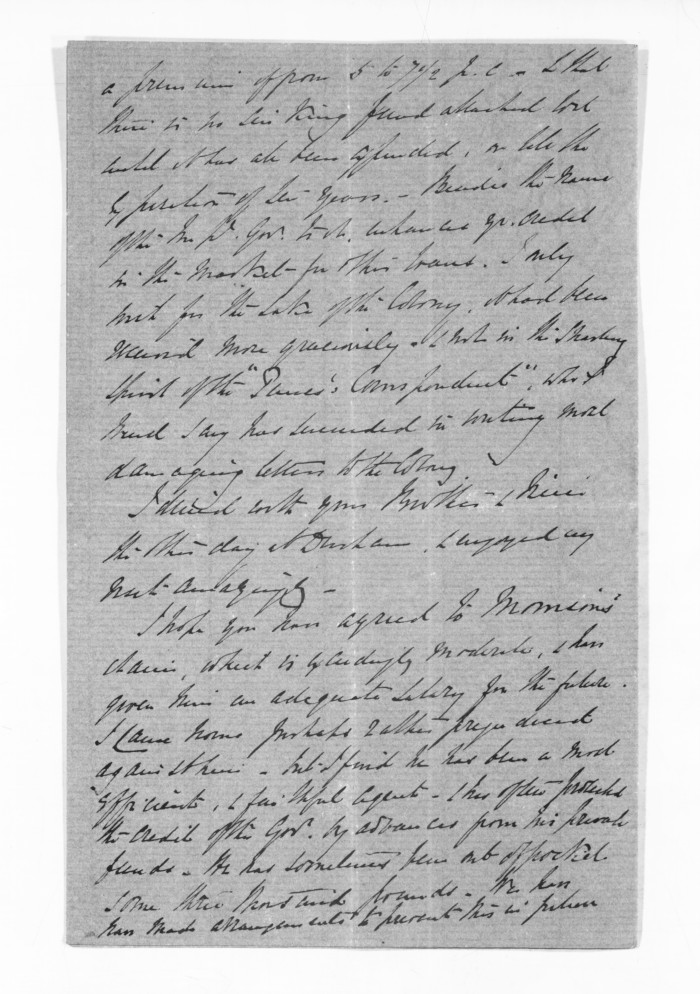 a premium of from 5 to 7½ p. c. - & that
there is no sinking fund attached to it
until it has all been expended, or till the
expiration of six years. - Besides the name
of the Imp. Gov. to it, enhances yr. credit
in the Market for other loans. I only
wish for the sake of the Colony, it had been
received more graciously - & not in the
spirit of the "Times's Correspondent", who I
must say has succeeded in writing most
damaging letters to the Colony.
I dined with your Brother & Niece
the other day at Durham, & enjoyed my
visit amazingly -
I hope you have agreed to Morrison's
claim, which is exceedingly moderate, & have
given him an adequate salary for the future.
I came home perhaps rather prejudiced
against him - but I find he has been a most
efficient, & faithful agent - & has often protected
the credit of the Gov. by advances from his private
funds - He has sometimes been out of pocket
some three thousand pounds - We have
made arrangements to prevent this in future